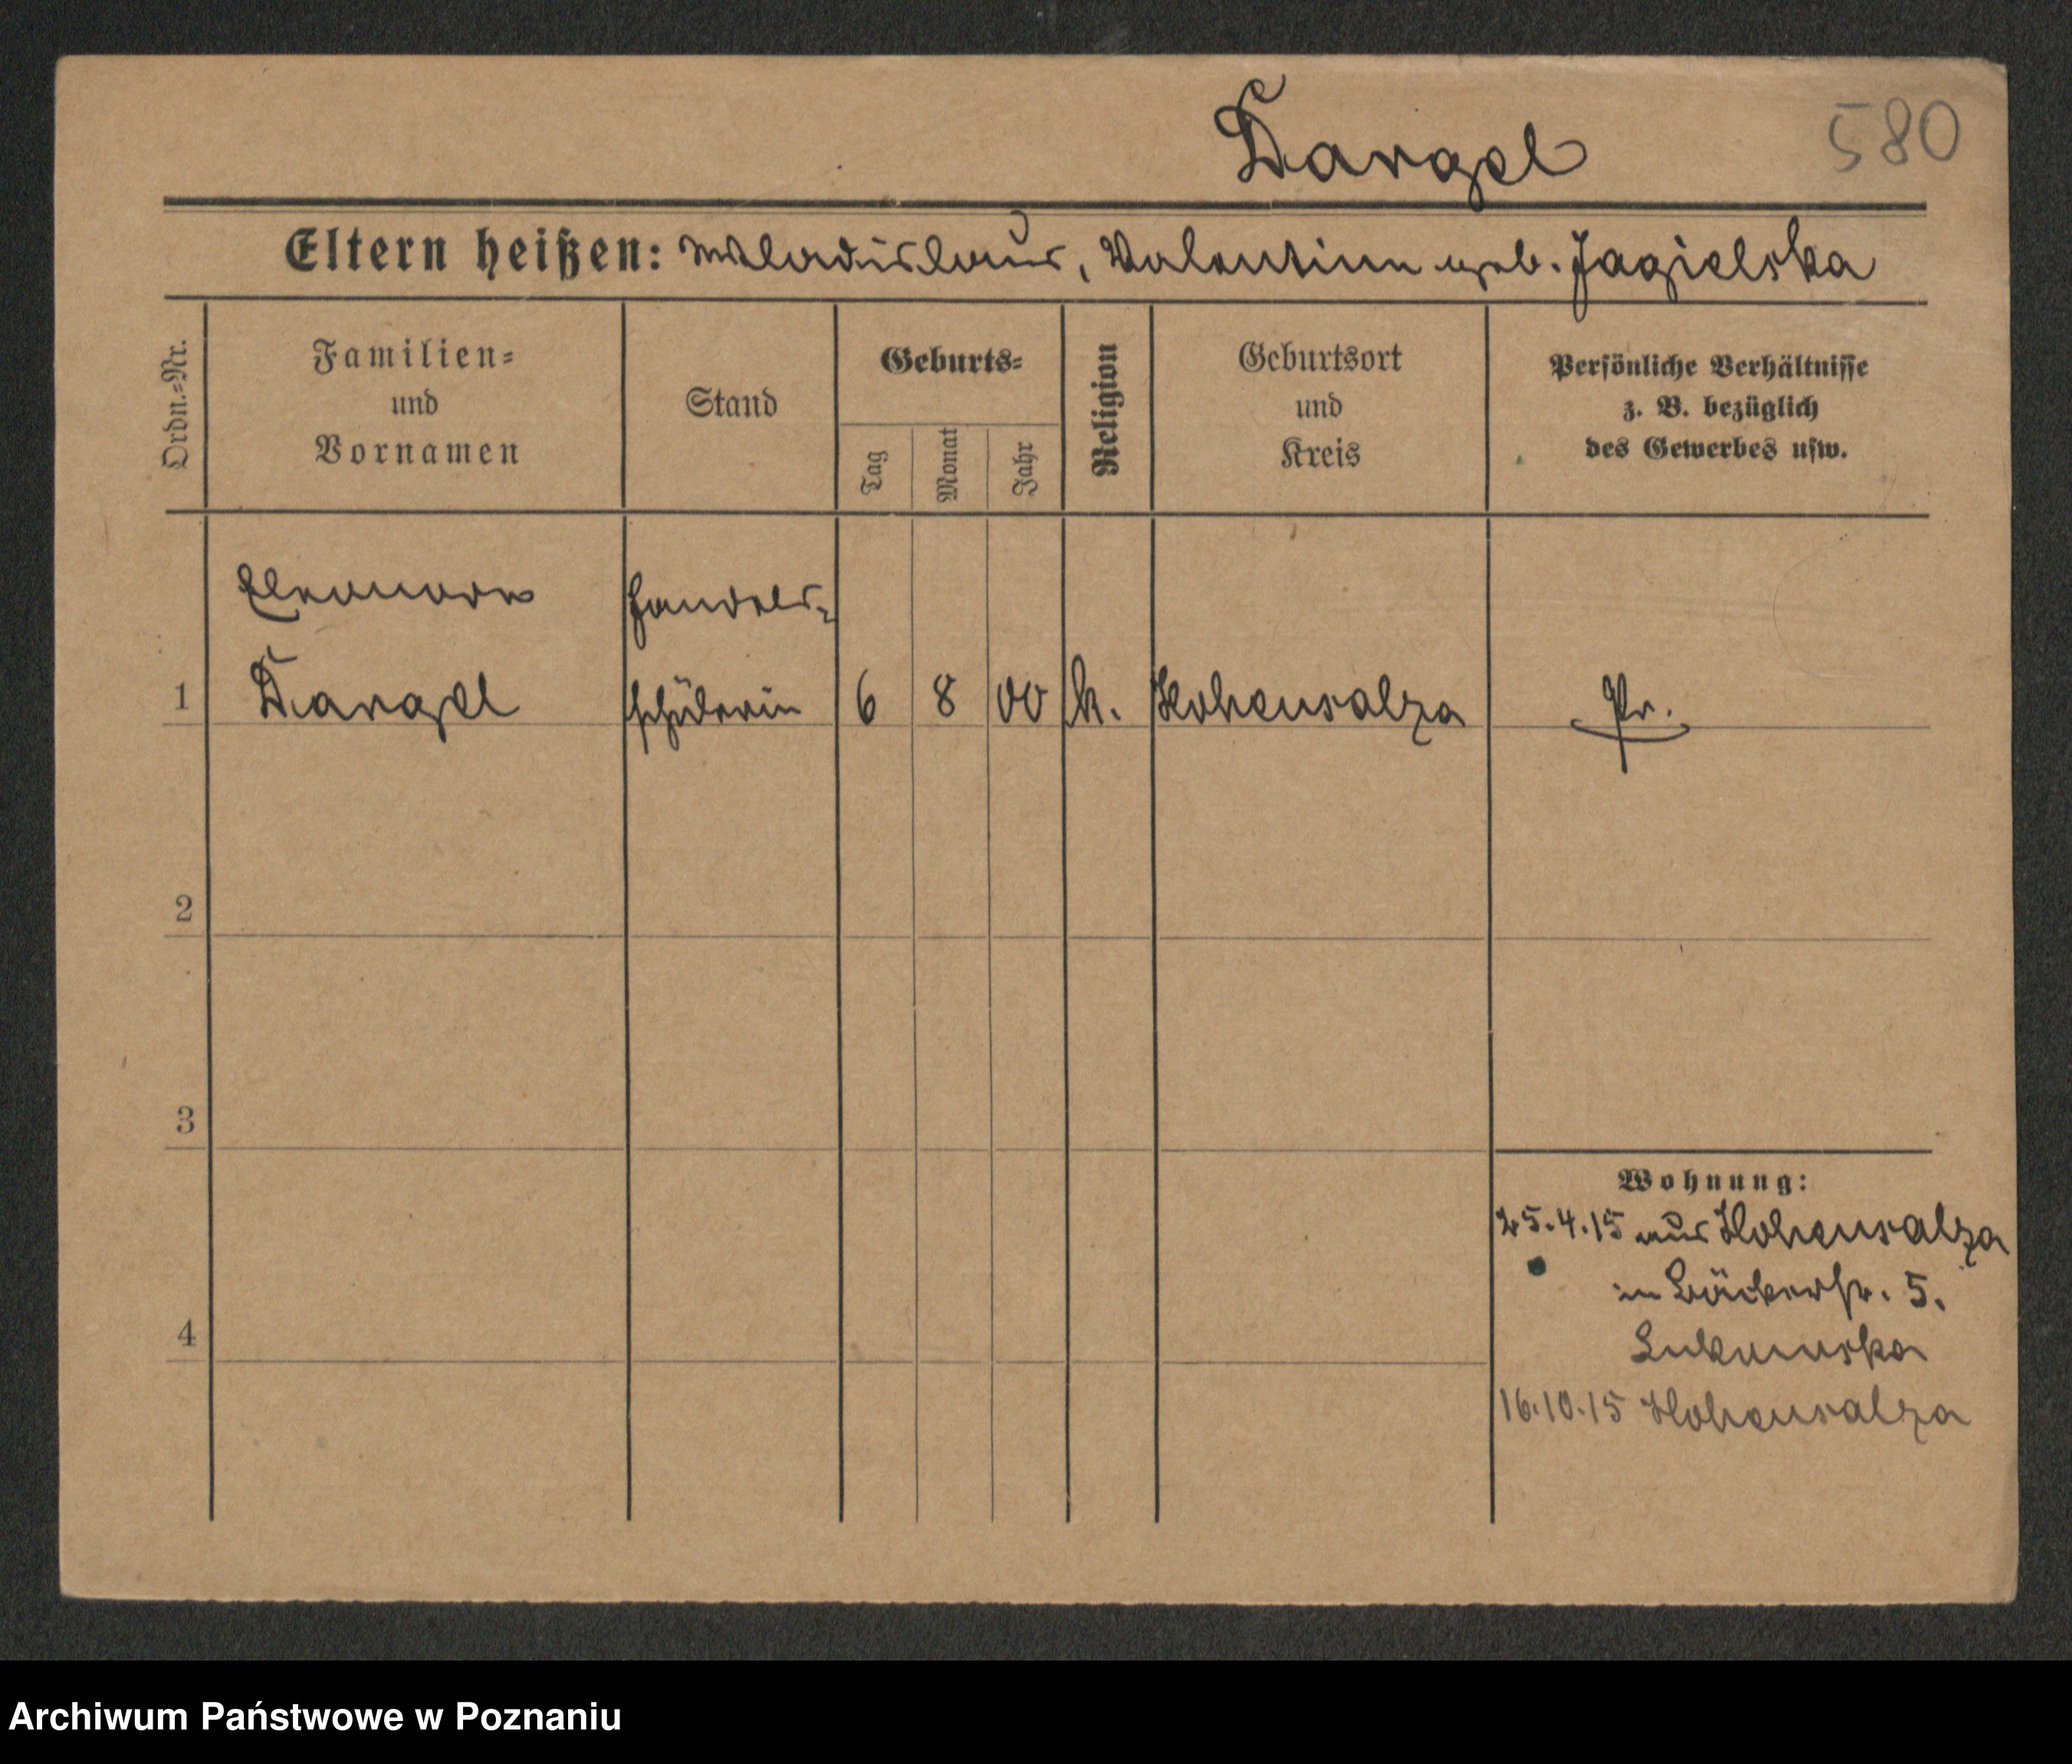 Dargel
580
Eltern heißen: Wladislaus, Valentine geb. Jagielska
Ordn.=Nr.
Familien=
und
Vornamen
Stand
Geburts=
Tag
Monat
Jahr
Religion
Geburtsort
und
Kreis
Persönliche Verhältnisse
z. B. bezüglich
des Gewerbes usw.
Eleonore Handels=
1 Dargel schülerin 6 8 00 k. Hohensalza Pr.
2
3
4
Wohnung:
25.4.15 aus Hohensalza
in Bäckerstr. 5.
16.10.15 Hohensalza
Archiwum Państwowe w Poznaniu